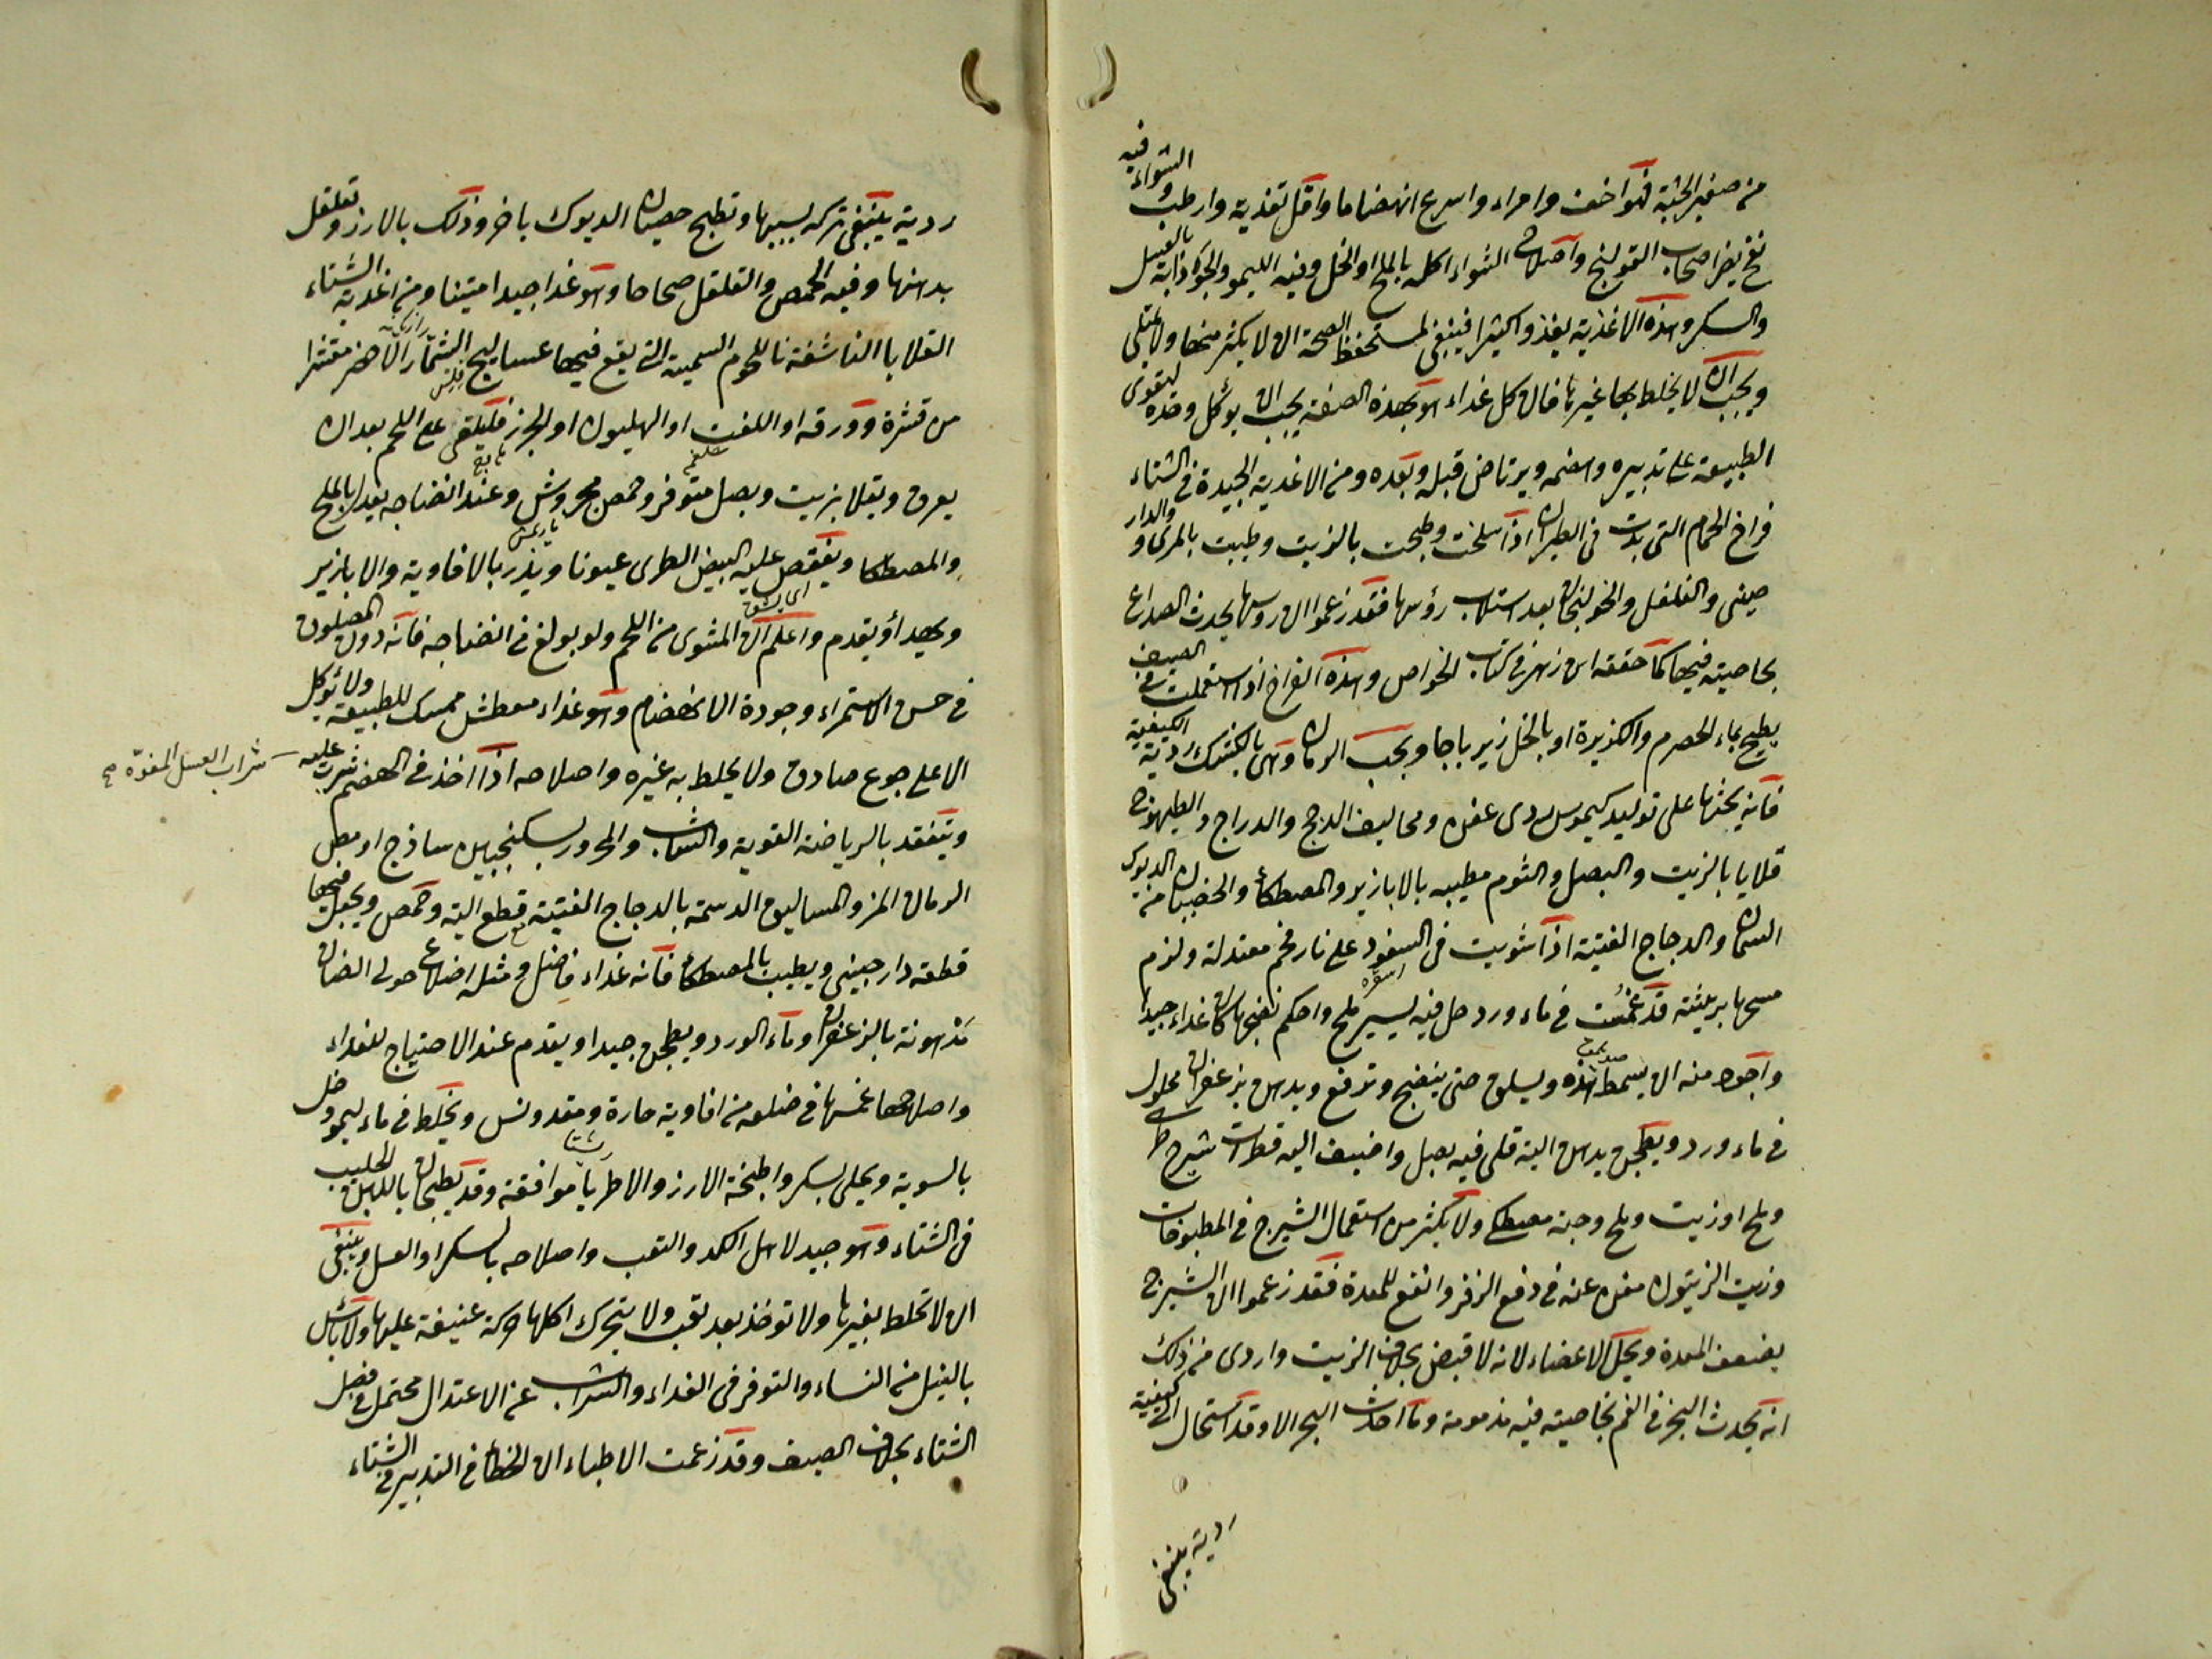 من صغير الجثة فهو اخف وامراء واسرع انهضاما واقل تغذيه وارطب والشواء فيه
نفع يضر اصحاب القولنج واصلاح الشواء اكله بالملح او الخل وفيه الليمو والجواذابة بالعسل
والسكر وهذه الاغذية يغذو كثيرا فينبغى لمستحفظ الصحة ان لا يكثر منها ولا يمتلى
ويجب ان لا يخلط بها غيرها فان كل غداء هو بهذه الصفة يجب ان يوكل وحده ليقوى
الطبيعة على تدبيره وهضمه ويرتاض قبله وبعده ومن الاغدية الجيدة فى الشتاء
فراخ الحمام التى بدت فى الطيران اذا سلخت وطبخت بالزيت وطيبت بالمرى والدار
صينى والفلفل والخولنجان بعد استلاب رؤسها فقد زعموا ان روسها يحدث الصداع
بخاصيته فيها كما حققه ابن زهر فى كتاب الخواص وهذه الفراخ اذا استعملت فى الصيف
يطبخ بماء الحصرم والكزبرة او بالخل زيرباجا وبحب الرمان وهى بالكشك ردية الكيفية
فانه يحثها على توليد كيموس ردى عفن ومحاليف الدجج والدراج والطيهوج
قلايا بالزيت والبصل والثوم مطيبه بالابازير والمصطكا والخصيان من الديوك
السمان والدجاج الفتية اذا شويت فى السفود على نار فحم معتدلة ولزم
مسحها بريشة قد غمست فى ماء ورد حل فيه يسير ملح واحكم نضجها كان غداء جيدا
واجود منه ان يسمط هذه ويسلق حتى ينضج وترفع ويدهن بزعفران محلول
فى ماء ورد ويطجن بدهن الية قلى فيه بصل واضيف اليه قطرات شيرج
وملح او زيت وملح وحبة مصطكى ولا يكثر من استعمال الشيرج فى المطبوخات
وزيت الزيتون مغن عنه فى دفع الزفر وانفع للمعدة فقد زعموا ان الشيرج
يضعف المعدة ويحل الاعضاء لانه لا قبض بخلاف الزيت واردى من ذلك
انه يحدث البخر فى الفم بخاصية فيه مذمومة وما احدث البخر الا وقد استحال الى كيفية
ردية ينبغى
ردية ينبغى تركه لسببها وتطبخ خصيان الديوك باخر وذلك بالارز وتقلقل
بدهنها وفيه الحمص والفلفل صحاحا وهو غدا جيد امتينا ومن اغدية الشتاء
القلايا الناشفة باللحوم السمينة التى يقع فيها عساليج الشمار الاخضر مقشرا
رازيانه
من قشره وورقه او اللفت او الهليون او الجزر فليلقى على اللحم بعد ان
شلغم
يعرق ويقلا بزيت وبصل متوفر وحمص مجروش وعند انضاجه يعدل بالملح
والمصطكا ويفقص عليه البيض الطرى عيونا ويذر بالافاوية والابازير
ويهدا ويقدم واعلم ان المشوى من اللحم ولو بولغ فى انضاجه فانه دون المصلوق
فى حسن الاستمراء وجودة الانهضام وهو غداء معطش ممسك للطبيعة ولا يؤكل
الا على جوع صادق ولا يخلط به غيره واصلاحه اذا اخذ فى الهضم شرب عليه
شراب العسل المفوّه صح
ويتفقد بالرياضة القوية والشاب والمحرور بسكنجبين ساذج او مص
الرمان المز والمساليق الدسمة بالدجاج الفتية قطع الية وحمص ويجعل فيها
قطعة دارجينى ويطيب بالمصطكا فانه غداء فاضل ومثله اضلاع حولى الضان
مدهونة بالزعفران وماء الورد ويطجن جيدا ويقدم عند الاحتياج للغداء
واصلاحها غمسها فى خلو من افاوية حارة ومقدونس ويخلط فى ماء ليمو وخل
بالسوية ويحلى بسكر واطبخة الارز والاطريا موافقة وقد يطبخان باللبن الحليب
رشتا
فى الشتاء وهو جيد لاهل الكد والتعب واصلاحه بالسكر او العسل وينبغى
ان لا تخلط بغيرها ولا توخذ بعد تعب ولا يتحرك اكلها حركة عنيفة عليها ولا باس
بالنيل من النساء والتوفر فى الغداء والشراب عن الاعتدال محتمل فى فصل
الشتاء بخلاف الصيف وقد زعمت الاطباء ان الخطا فى التدبير فى الشتاء